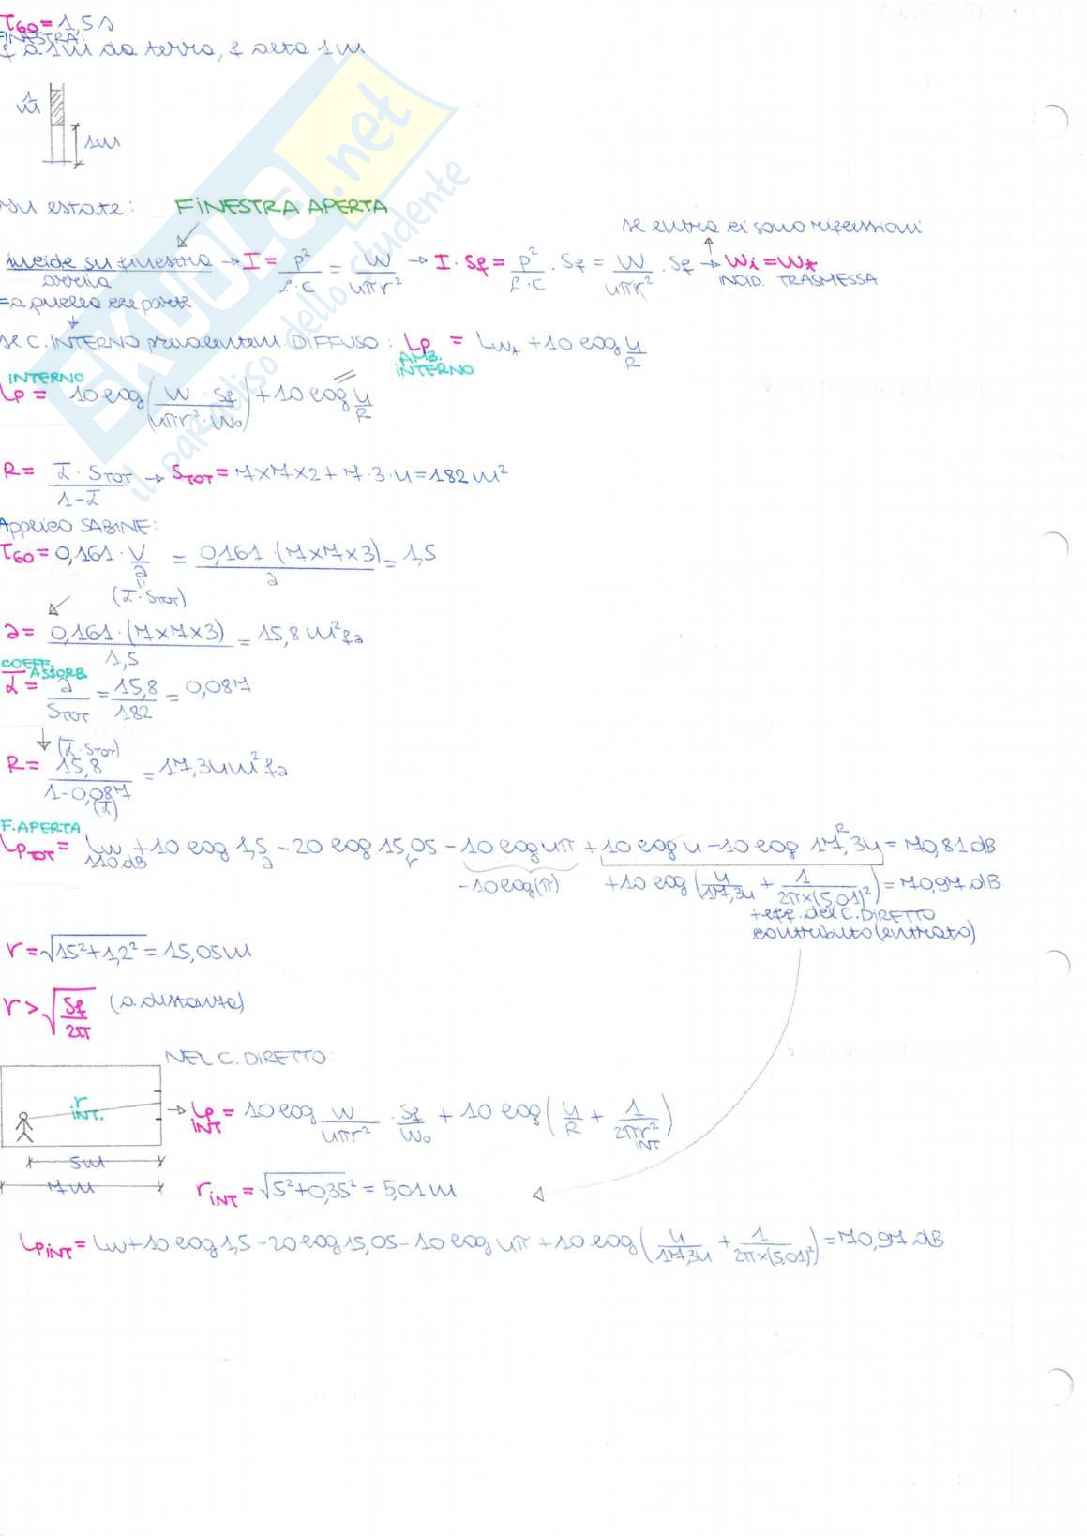 T60 = 1,5 s
FINESTRA:
f a 1m da terra, f alta 1m
1 m
1m
su estate: FINESTRA APERTA
se entra ci sono riflessioni
incide su finestra → I = p² / ρ·c = W / 4πr² → I · Sf = p² / ρ·c · Sf = W / 4πr² · Sf → Wi = Wt
INCID. TRASMESSA
= a quella che parte
se C. INTERNO prevalentem. DIFFUSO: Lp = Lwt + 10 log 4/R
AMB. INTERNO
INTERNO
Lp = 10 log (W Sf / 4πr² · W0) + 10 log 4/R
R = ᾱ · STOT / 1-ᾱ → STOT = 7x7x2 + 7·3·4 = 182 m²
Applico SABINE:
T60 = 0,161 · V/a = 0,161 · (7x7x3) / a = 1,5
(ᾱ · STOT)
a = 0,161 · (7x7x3) / 1,5 = 15,8 m² fa
COEFF. ASSORB.
ᾱ = a / STOT = 15,8 / 182 = 0,087
(ᾱ · STOT)
R = 15,8 / 1-0,087 = 17,34 m² fa
(ᾱ)
F. APERTA
LpTOT = Lw + 10 log 1,5 - 20 log 15,05 - 10 log 4π + 10 log 4 - 10 log 17,34 = 70,81 dB
110 dB a r R
-10 log(π) +10 log (4/17,34 + 1/2π×(5,01)²) = 70,97 dB
+ eff. del C. DIRETTO
contributo (entrato)
r = √15² + 1,2² = 15,05 m
r > √Sf/2π (a distanza)
NEL C. DIRETTO
r INT. → Lp INT = 10 log W / 4πr² · Sf / W0 + 10 log (4/R + 1 / 2πr²INT)
5m
7m
rINT = √5² + 0,35² = 5,01 m
LpINT = Lw + 10 log 1,5 - 20 log 15,05 - 10 log 4π + 10 log (4/17,34 + 1/2π×(5,01)²) = 70,97 dB
SKUOLA.net
il paradiso dello studente